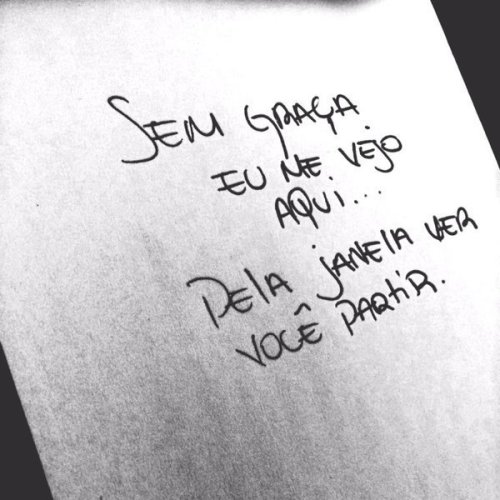 SEM GRAÇA
EU ME VEJO
AQUI...
PELA JANELA VER
VOCÊ PARTIR.